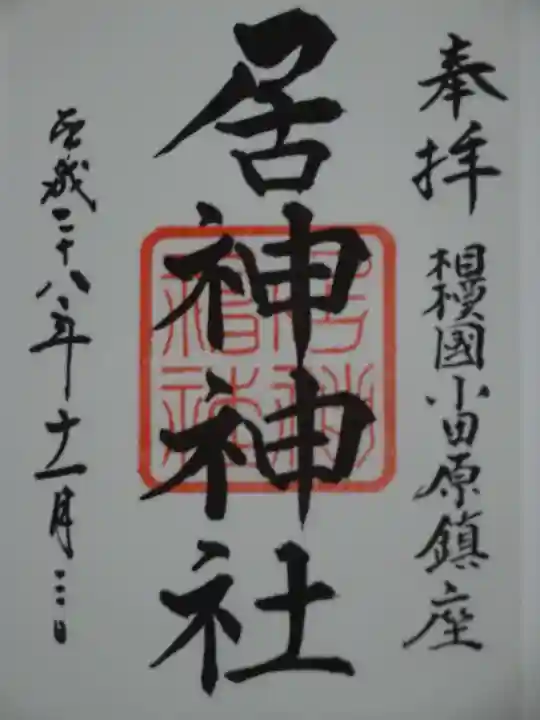 奉拝
相模國小田原鎮座
居神神社
居神神社
平成二十八年十一月三日